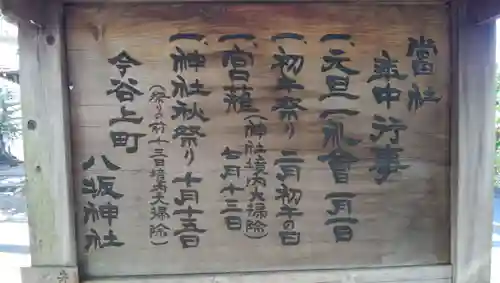 當社
年中行事
一、元旦一礼會 一月一日
一、初午祭り 二月初午の日
一、宮薙(神社境内大掃除) 七月十三日
一、神社秋祭り 十月十五日
(祭りの前十三日境内大掃除)
今谷上町
八坂神社